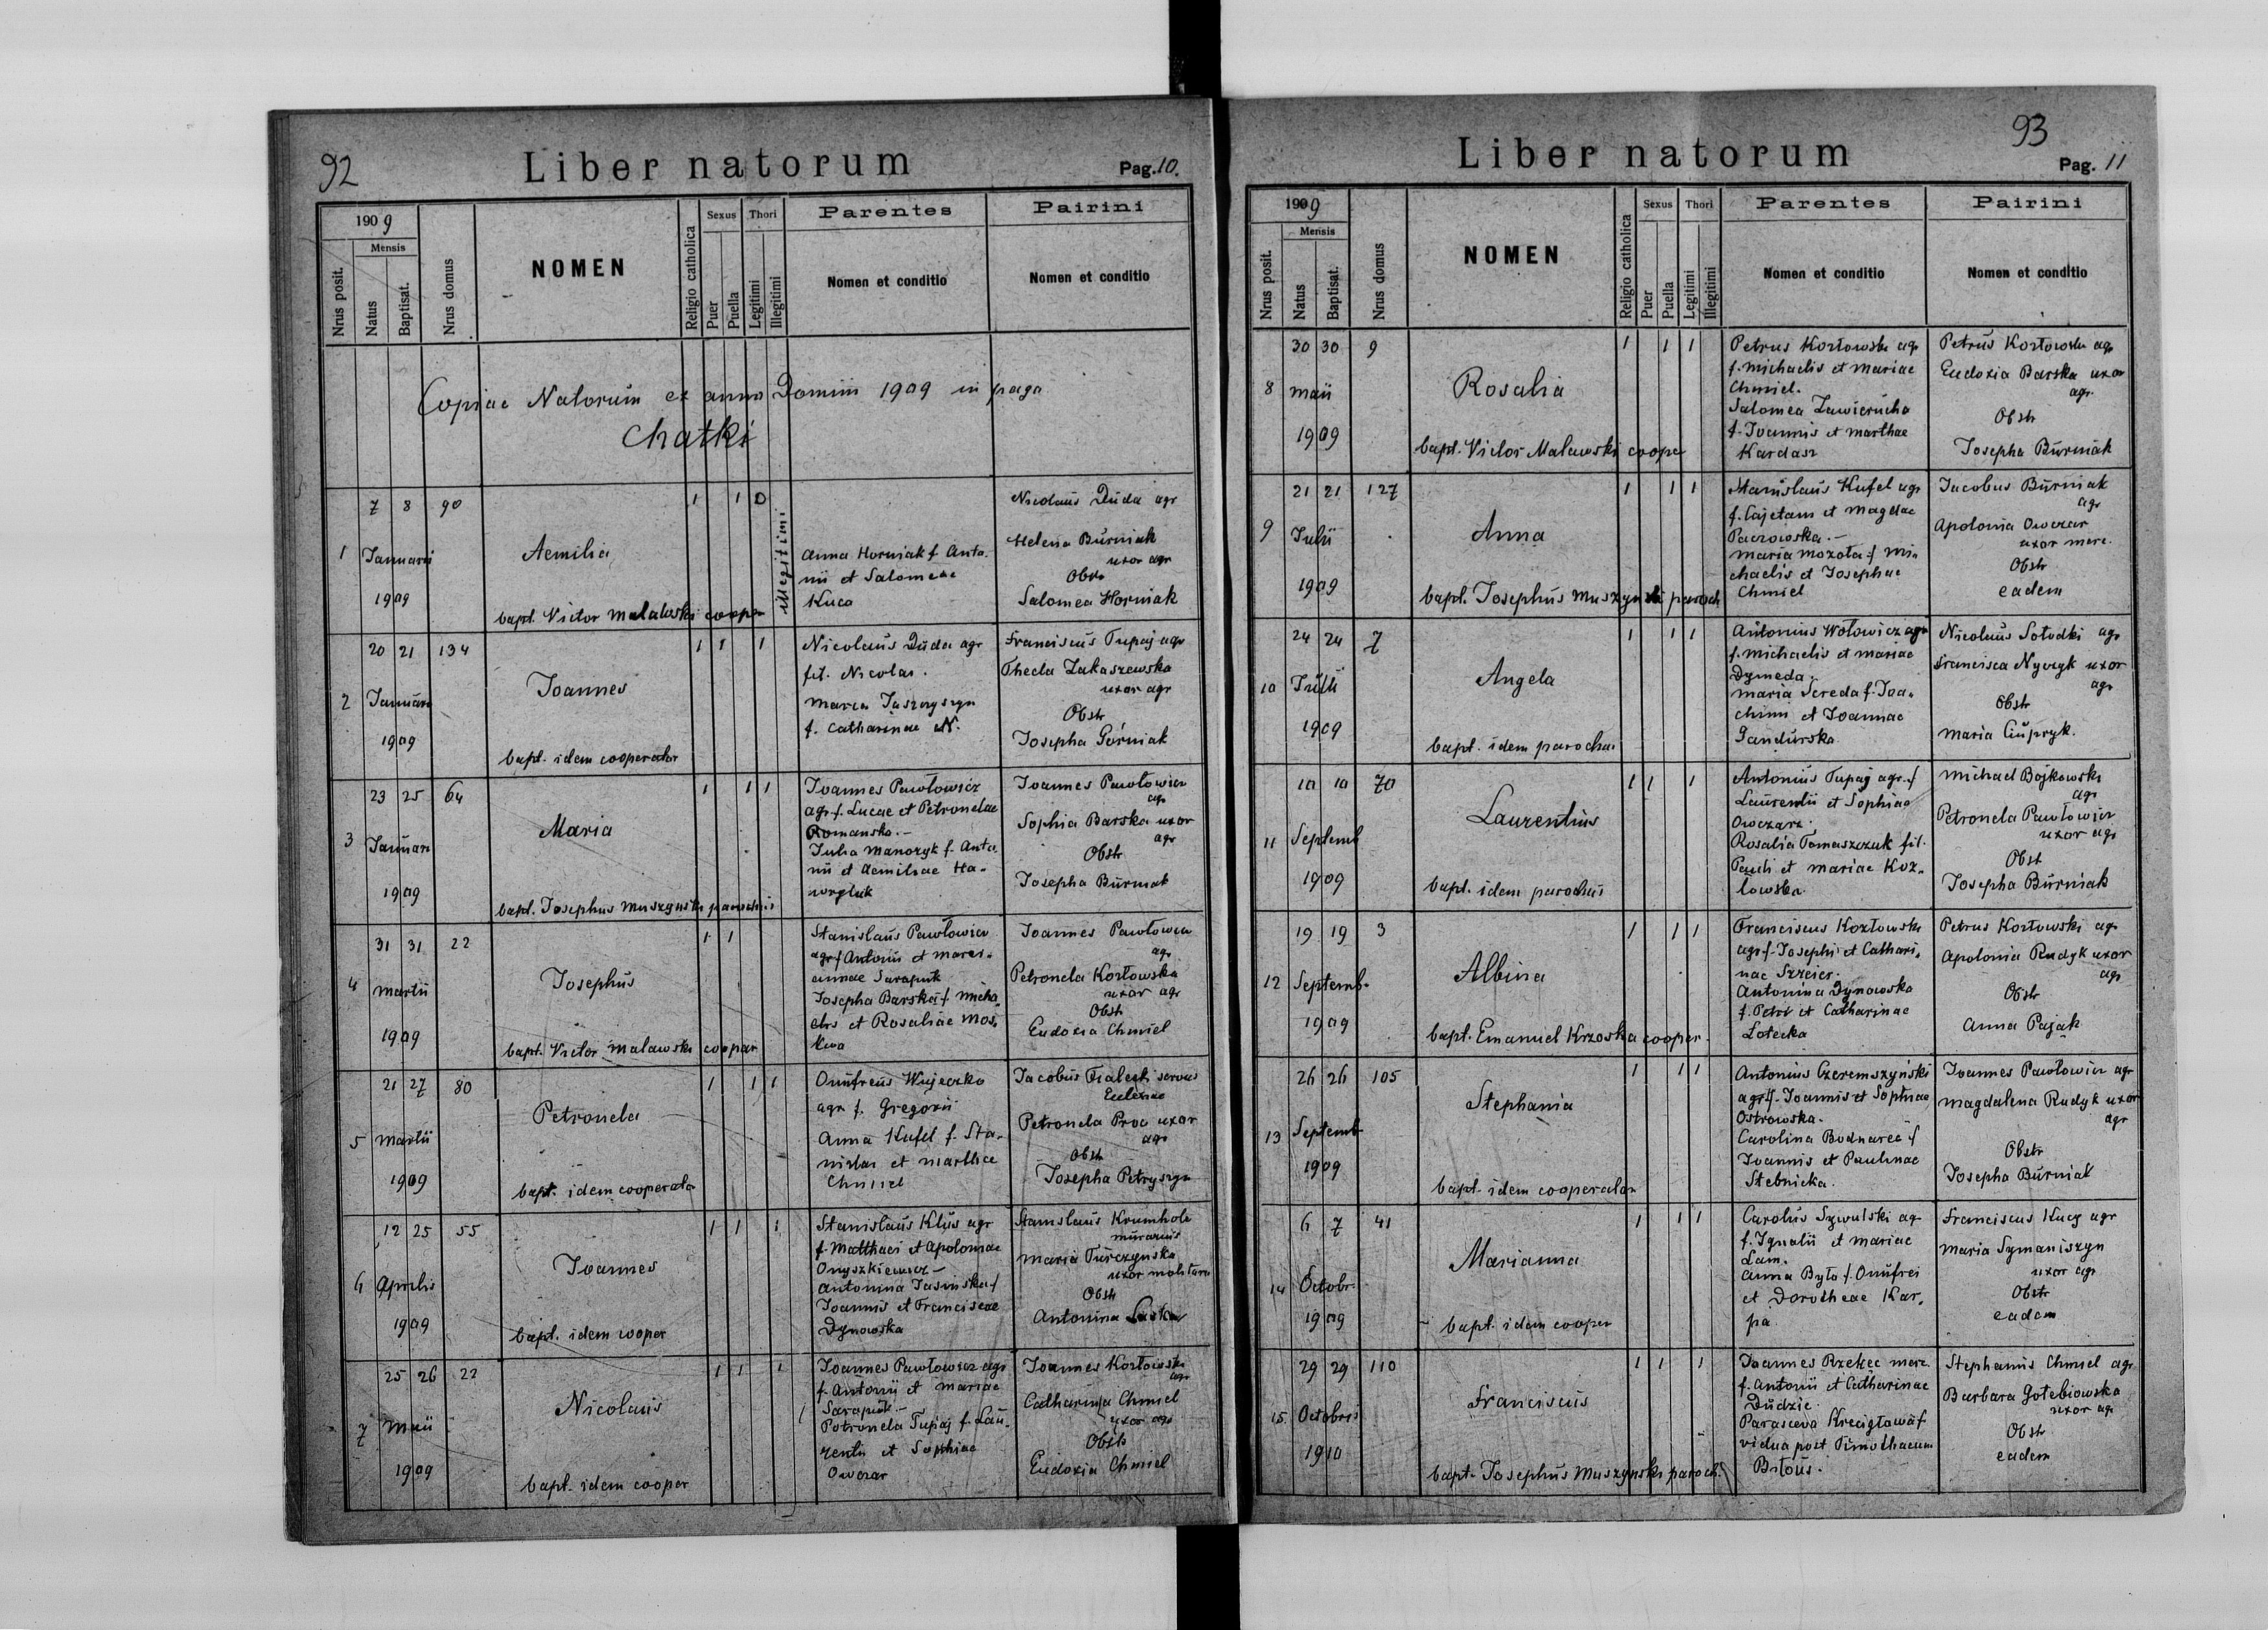 92
Liber natorum
Pag. 10.
1909
Mensis
Nrus posit.
Natus
Baptisat.
Nrus domus
NOMEN
Religio catholica
Sexus
Puer
Puella
Thori
Legitimi
Illegitimi
Parentes
Nomen et conditio
Pairini
Nomen et conditio
Copiae Natorum ex anno Domini 1909 in pago
Chatki
1
7 8 90
Januarii
1909
Aemilia
bapt. Victor Malawski cooper
1 1 0
illegitimi
Anna Horniak f. Anto-
nii et Salomeae
Kuca
Nicolaus Duda agr
Helena Burniak
uxor agr
Obstr
Salomea Horniak
2
20 21 134
Januarii
1909
Joannes
bapt. idem cooperator
1 1 1
Nicolaus Duda agr
fil. Nicolai.
Maria Jaszczyszyn
f. Catharinae N.
Franciscus Tupaj agr
Thecla Lukaszewska
uxor agr
Obstr
Josepha Górniak
3
23 25 64
Januar
1909
Maria
bapt. Josephus Muszynski parochus
1 1 1
Joannes Pawłowicz
agr f. Lucae et Petronelae
Romanska.-
Julia Manczyk f. Anto-
nii et Aemiliae Ha-
Joannes Pawłowicz
agr
Sophia Barska uxor
agr
Obstr
Josepha Burniak
4
31 31 22
Martii
1909
Josephus
bapt. Victor Malawski cooper
1 1
Stanislaus Pawłowicz
agr f Antonii et Mari-
annae Sarapuk
Josepha Barska f. Micha-
elis et Rosaliae Mos-
kwa
Joannes Pawłowicz
agr
Petronela Kozłowska
uxor agr
Obstr
Eudoxia Chmiel
5
21 27 80
Martii
1909
Petronela
bapt. idem cooperator
1 1 1
Onufreus Wujeczko
agr f. Gregorii
Anna Kufel f. Sta-
nislai et Marthae
Chmiel
Jacobus servus
Ecclesiae
Petronela Proc uxor
agr
Obstr
Josepha Petryszyn
6
12 25 55
Aprilis
1909
Joannes
bapt. idem cooper
1 1 1
Stanislaus Klus agr
f. Matthaei et Apoloniae
Onyszkiewicz -
Antonina Jasinska f
Joannis et Franciscae
Dynowska
Stanislaus Krumholz
murarius
Maria Turczynska
uxor molitoris
Obstr
Antonina
7
25 26 22
Maii
1909
Nicolaus
bapt. idem cooper
1 1 1
Joannes Pawłowicz agr
f. Antonii et Mariae
Sarapuk -
Petronela Tupaj f. Lau-
rentii et Sophiae
Owczar
Joannes Kozłowski
agr
Catharina Chmiel
uxor agr
Obstr
Eudoxia Chmiel
93
Liber natorum
Pag. 11
1909
Mensis
Nrus posit.
Natus
Baptisat.
Nrus domus
NOMEN
Religio catholica
Sexus
Puer
Puella
Thori
Legitimi
Illegitimi
Parentes
Nomen et conditio
Pairini
Nomen et conditio
8
30 30 9
Maii
1909
Rosalia
bapt. Victor Malawski cooper
1 1 1
Petrus Kozłowski agr
f. Michaelis et Mariae
Chmiel.
Salomea Zawierucha
f. Joannis et Marthae
Kardasz
Petrus Kozłowski agr
Eudoxia Barska uxor
agr.
Obstr
Josepha Burniak
9
21 21 127
Julii
1909
Anna
bapt. Josephus Muszynski paroch
1 1 1
Stanislaus Kufel agr
f. Cajetani et Magdae
Paczowska.-
Maria Mozoła f Mi-
chaelis et Josephae
Chmiel
Jacobus Burniak
agr
Apolonia Owczar
uxor merc.
Obstr
eadem
10
24 24 7
Julii
1909
Angela
bapt. idem parochus
1 1 1
Antonius Wołowicz agr
f. Michaelis et Mariae
Dymeda.
Maria Sereda f. Joa-
chimi et Joannae
Nicolaus Sołodki agr
Francisca Nyczyk uxor
agr
Obstr
Maria Ciupryk.
11
10 10 70
Septemb
1909
Laurentius
bapt. idem parochus
1 1 1
Antonius Tupaj agr. f
Laurentii et Sophiae
Owczarz.
Rosalia Tomaszczuk fil.
Pauli et Mariae Koz-
lowska
Michael Bojkowski
agr
Petronela Pawłowicz
uxor agr
Obst
Josepha Burniak
12
19 19 3
Septemb.
1909
Albina
bapt. Emanuel Krzoska cooper.
1 1 1
Franciscus Kozłowski
agr f. Josephi et Cathari-
nae Szreier.
Antonina Dynowska
f. Petri et Catharinae
Lotecka
Petrus Kozłowski agr
Apolonia Rudyk uxor
agr
Obstr
Anna Pająk
13
26 26 105
Septemb
1909
Stephania
bapt. idem cooperator
1 1 1
Antonius Czeremszyński
agr f. Joannis et Sophiae
Ostrowska.
Carolina Bodnarec f
Joannis et Paulinae
Stebnicka.
Joannes Pawłowicz agr
Magdalena Rudyk uxor
agr
Obstr
Josepha Burniak
14
6 7 41
Octobr.
1909
Marianna
bapt. idem cooper
1 1 1
Carolus Szwulski agr
f. Ignatii et Mariae
Lam.
Anna Była f. Onufrei
et Dorotheae Kar-
pa.
Franciscus Kucy agr
Maria Symaniszyn
uxor agr
Obstr
eadem
15.
29 29 110
Octobris
1910
Franciscus
bapt. Josephus Muszynski paroch.
1 1 1
Joannes Rzekec merc.
f. Antonii et Catharinae
Dudzic.
Parasceva Krecigłowa f
vidua post Timotheum
Bitous.
Stephanus Chmiel agr
Barbara Gołebiowska
uxor agr
Obstr
eadem